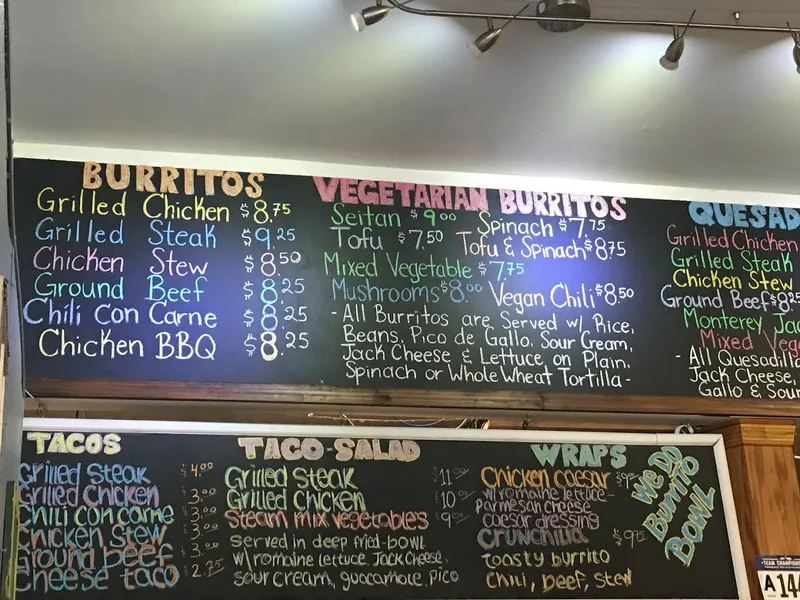 BURRITOS
Grilled Chicken $8.75
Grilled Steak $9.25
Chicken Stew $8.50
Ground Beef $8.25
Chili con Carne $8.25
Chicken BBQ $8.25
VEGETARIAN BURRITOS
Seitan $9.00 Spinach $7.75
Tofu $7.50 Tofu & Spinach $8.75
Mixed Vegetable $7.75
Mushrooms $8.00 Vegan Chili $8.50
-All Burritos are Served w/ Rice,
Beans, Pico de Gallo, Sour Cream,
Jack Cheese & Lettuce on Plain,
Spinach or Whole Wheat Tortilla-
QUESAD
Grilled Chicken
Grilled Steak
Chicken Stew
Ground Beef $8.25
Monterey Jac
Mixed Veg
- All Quesadilla
Jack Cheese,
Gallo & Sour
TACOS
Grilled Steak $4.00
Grilled Chicken 3.00
Chili con carne 3.00
Chicken Stew 3.00
Ground beef 3.00
Cheese taco $2.75
TACO-SALAD
Grilled Steak $11.00
Grilled Chicken $10.00
Steam mix vegetables $9.00
Served in deep fried-bowl
w/ romaine lettuce, Jack Cheese,
sour cream, guacamole, pico
WRAPS
Chicken caesar
w/ romaine lettuce-
parmesan cheese
caesar dressing
Crunchilla
toasty burrito
chili, beef, stew
We DO
Burrito
BOWL
A 144